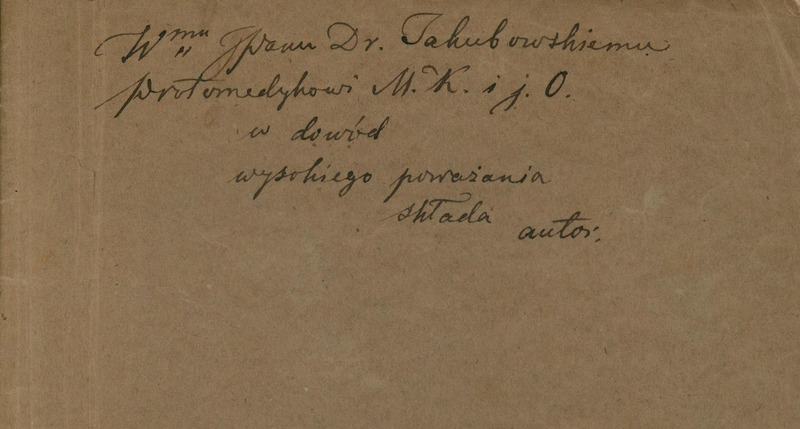 Wmu JPanu Dr. Jakubowskiemu
Protomedykowi M. K. i j. O.
w dowód
wysokiego poważania
składa
autor.